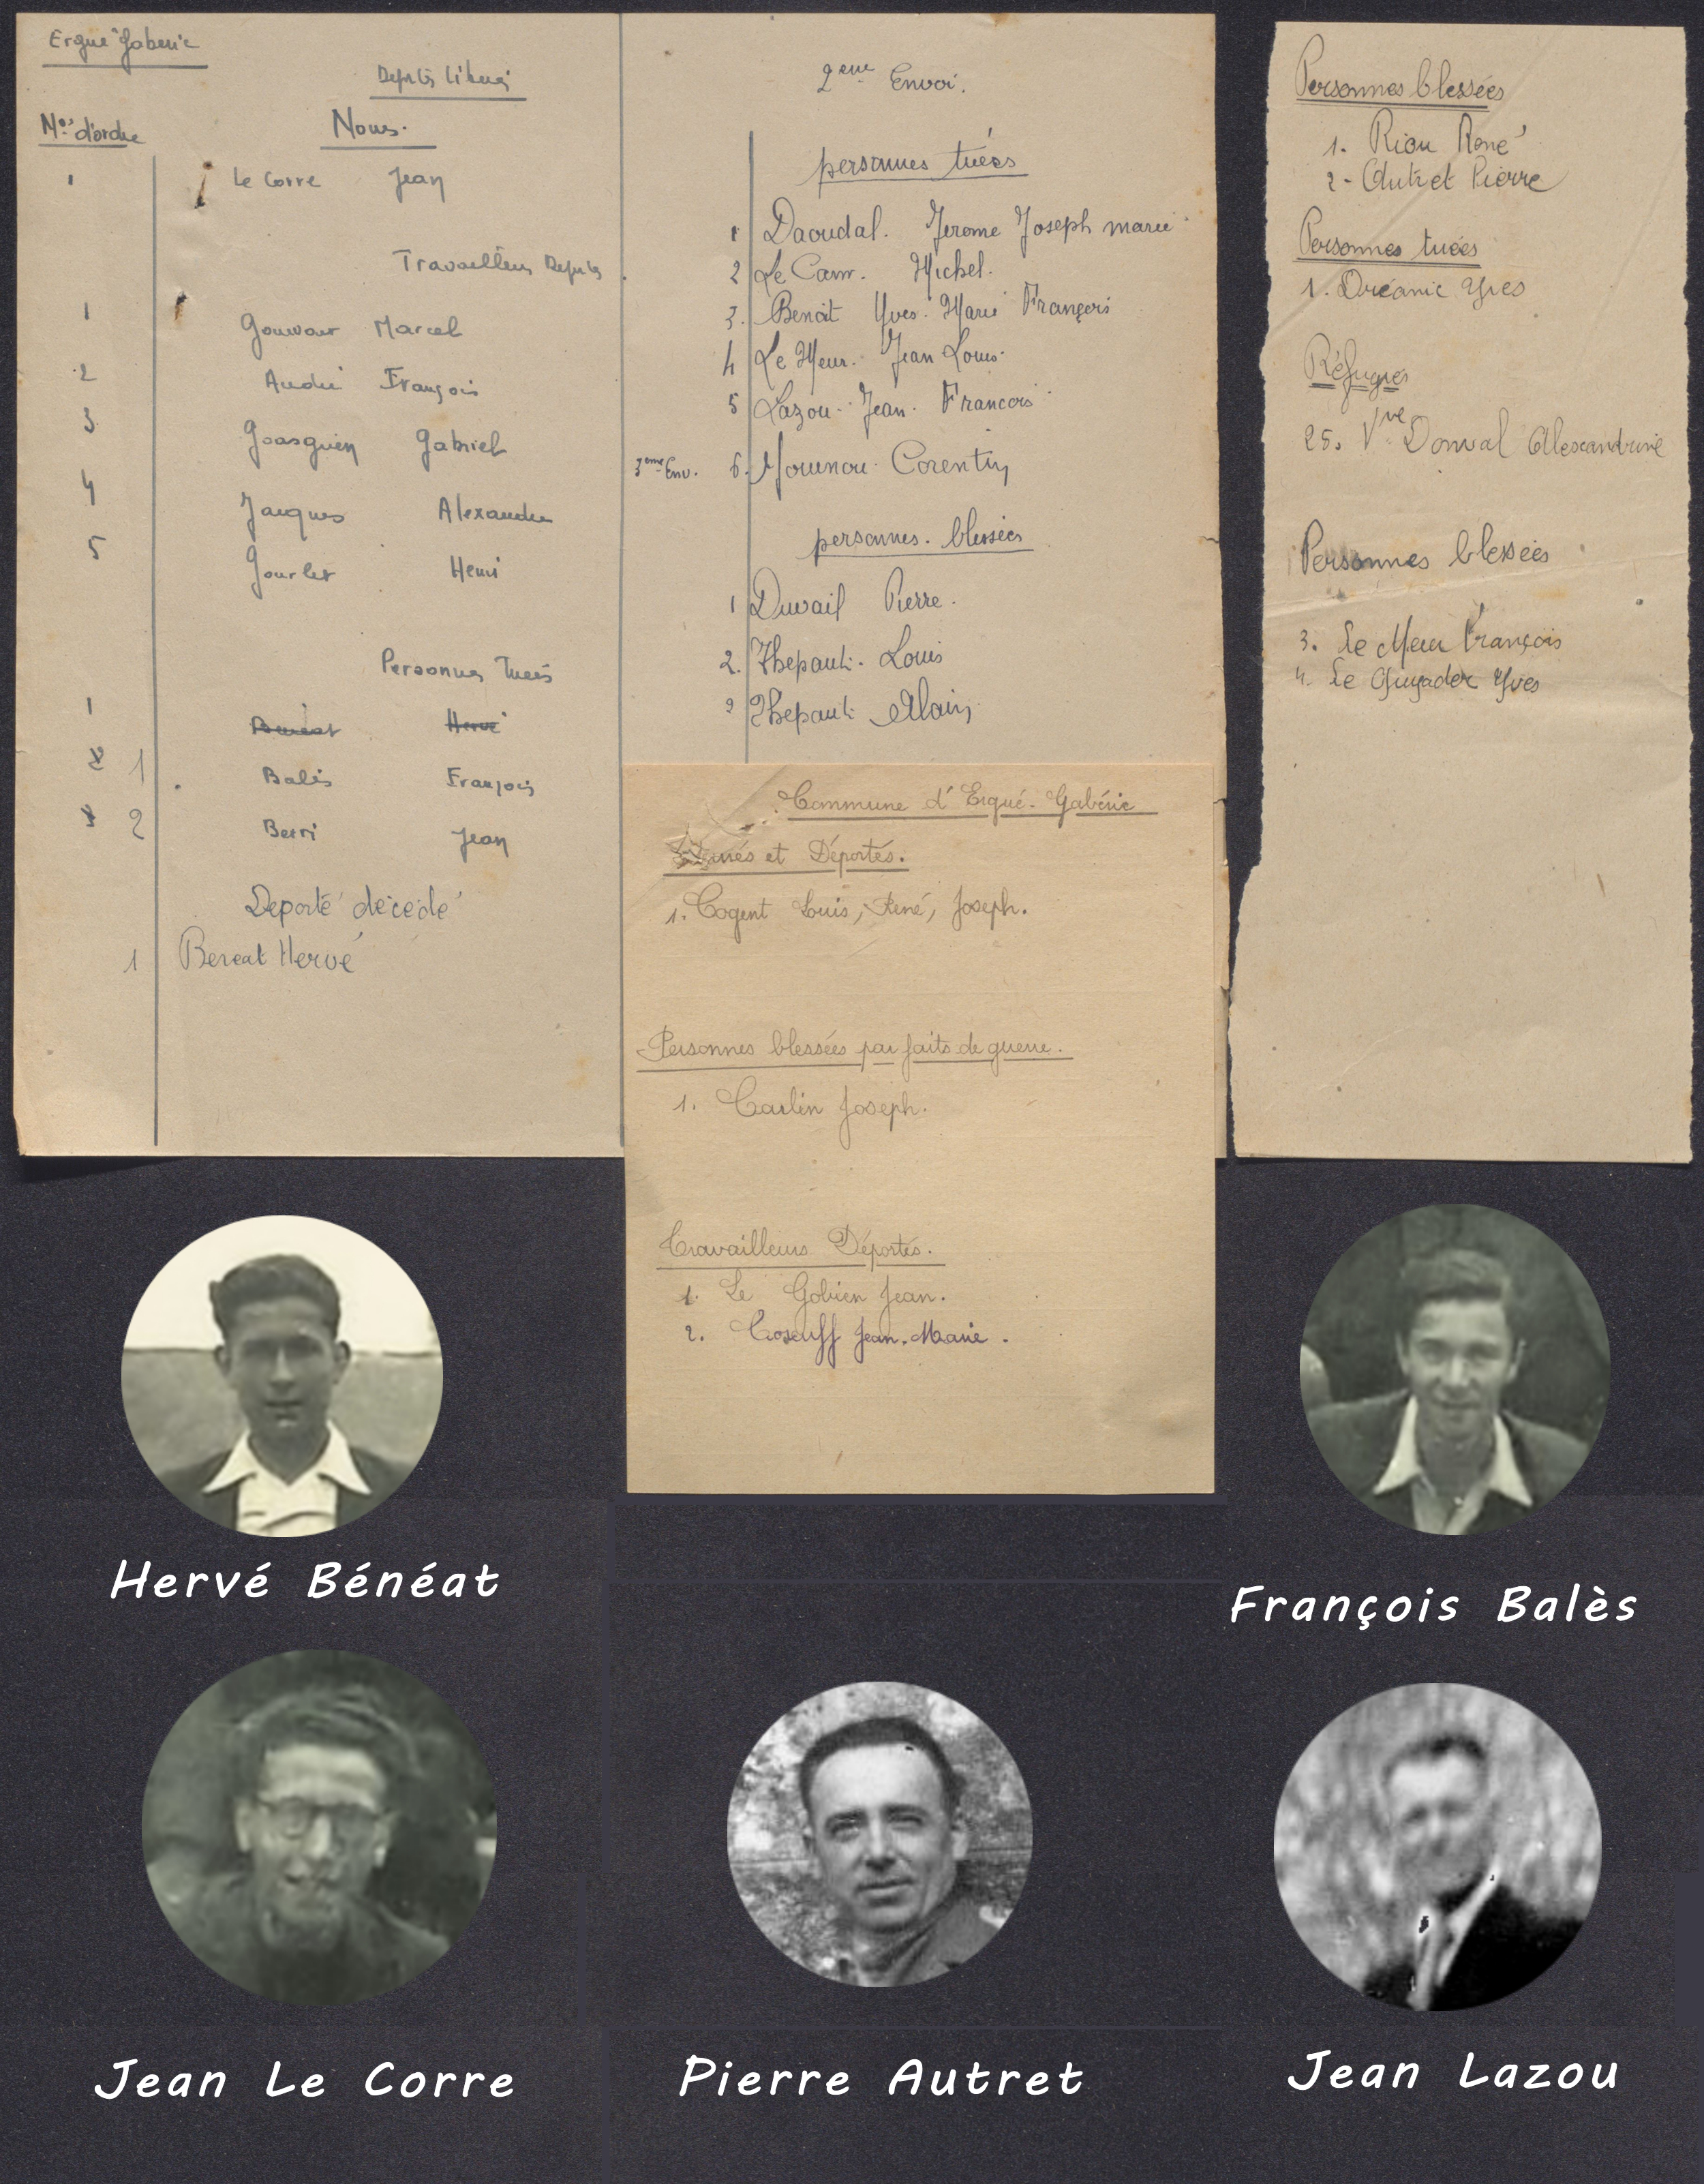 Ergué Gabéric
Déportés libérés
Nos d'ordre
Noms.
1 Le Corre Jean
Travailleurs Déportés
1 Gourvour Marcel
2 André François
3 Goasguen Gabriel
4 Jacques Alexandre
5 Gourlet Henri
Personnes Tuées
1 Beneat Hervé
1 Balès François
2 Berri Jean
Déporté décédé
1 Beneat Hervé
2eme Envoi.
personnes tuées
1 Daoudal. Jerome Joseph marie
2 Le Cam. Michel.
3. Benoit Yves. Marie François
4 Le Meur. Jean Louis.
5 Lazou. Jean. Francois
3eme Env. 6. Mounou Corentin
personnes. blessées
1 Duvail Pierre.
2. Thepaut. Louis
2 Thepaut Alain
Commune d'Ergué-Gabéric
et Déportés.
1. Cogent Louis, René, Joseph.
Personnes blessées par faits de guerre.
1. Carlin Joseph.
Travailleurs Déportés.
1. Le Gobien Jean.
2. Coseuff Jean-Marie.
Personnes blessées
1. Riou René
2- Autret Pierre
Personnes tuées
1. Orcéanic Yves
Réfugiés
25. Vve Donval Alexandrine
Personnes blessées
3. Le Meur François
4. Le Guyader Yves
Hervé Bénéat
François Balès
Jean Le Corre
Pierre Autret
Jean Lazou